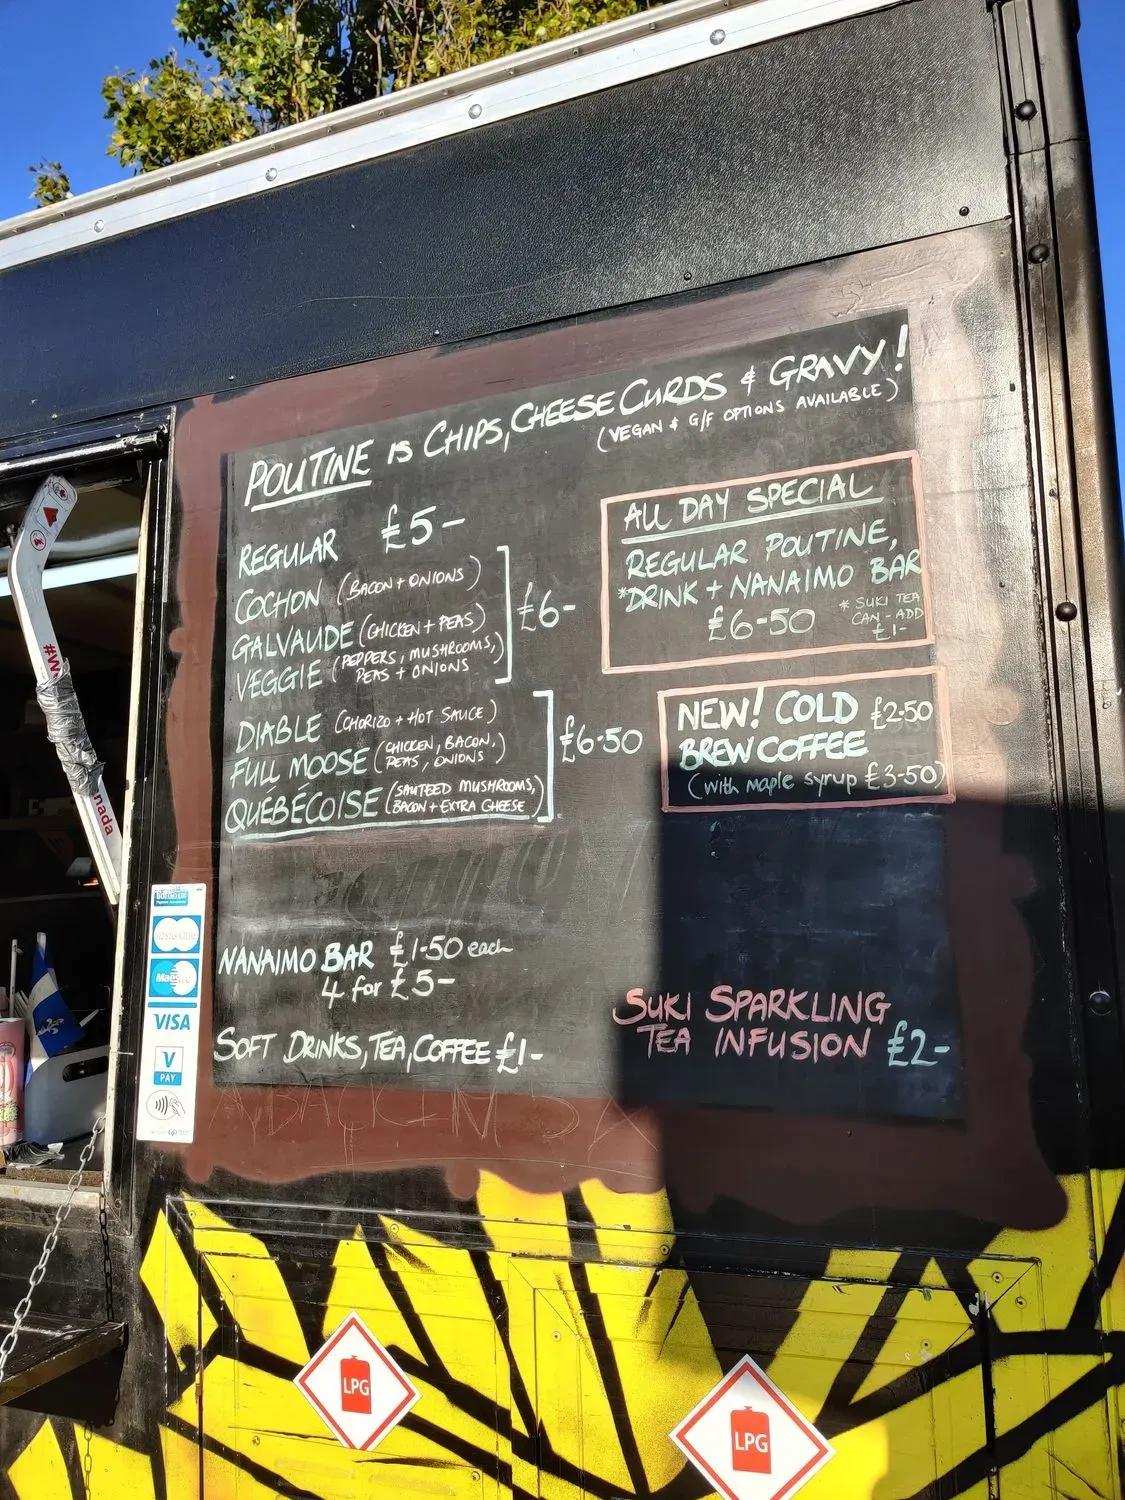 POUTINE IS CHIPS, CHEESE CURDS & GRAVY!
(VEGAN & G/F OPTIONS AVAILABLE)
REGULAR £5-
COCHON (BACON + ONIONS)
GALVAUDE (CHICKEN + PEAS)
VEGGIE (PEPPERS, MUSHROOMS,
PEAS + ONIONS
£6-
DIABLE (CHORIZO + HOT SAUCE)
FULL MOOSE (CHICKEN, BACON,
PEAS, ONIONS)
QUÉBÉCOISE (SAUTEED MUSHROOMS,
BACON + EXTRA CHEESE)
£6-50
NANAIMO BAR £1-50 each
4 for £5-
SOFT DRINKS, TEA, COFFEE £1-
ALL DAY SPECIAL
REGULAR POUTINE,
*DRINK + NANAIMO BAR
£6-50
* SUKI TEA
CAN - ADD
£1-
NEW! COLD £2-50
BREW COFFEE
(with maple syrup £3-50)
SUKI SPARKLING
TEA INFUSION £2-
#W
nada
Maestro
VISA
V
PAY
LPG
LPG